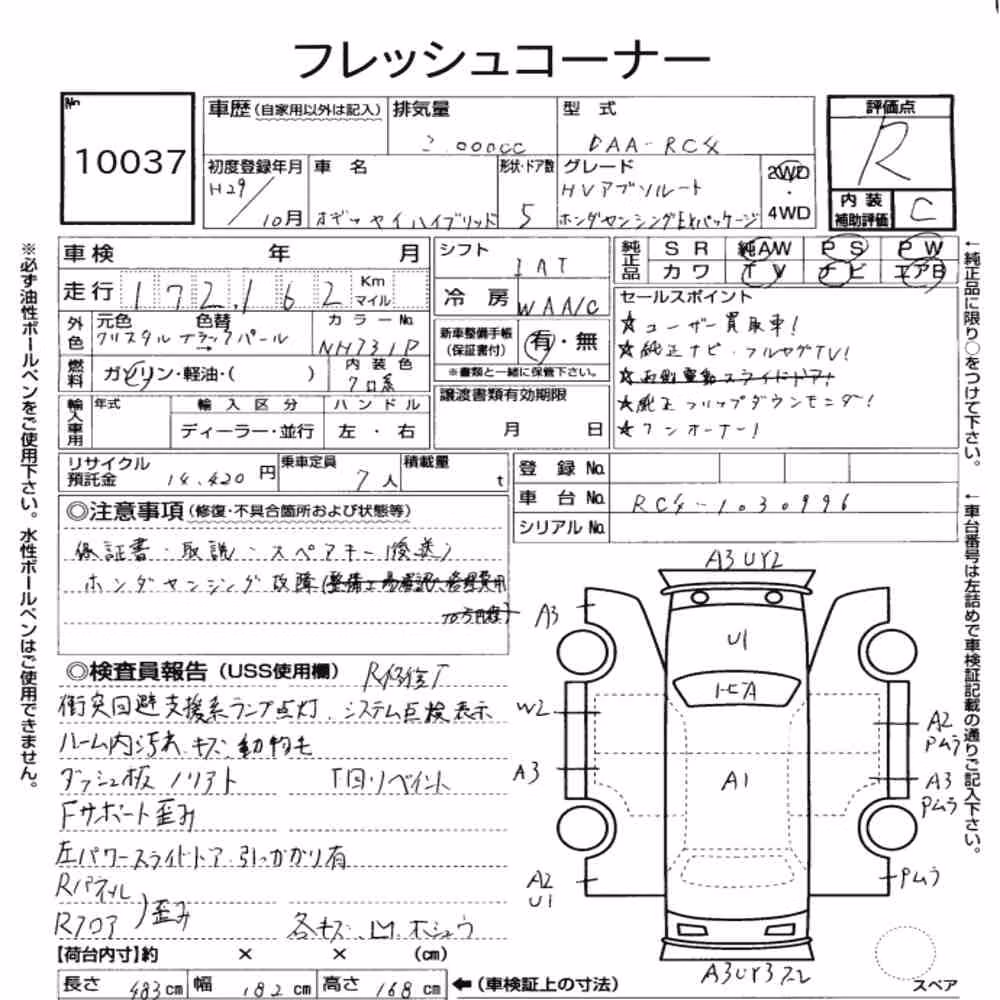 フレッシュコーナー
No
10037
車歴 (自家用以外は記入)
排気量
2.000cc
型 式
DAA-RC4
評価点
R
初度登録年月
H29/10月
車 名
オデッセイハイブリッド
形状・ドア数
5
グレード
HVアブソルート
ホンダセンシングEXパッケージ
2WD
・
4WD
内 装
補助評価
C
車 検 年 月
シフト
IAT
純正品
SR 純AW PS PW
カワ TV ナビ エアB
走行 172,162 Km
マイル
冷 房
WAA/C
セールスポイント
☆ユーザー買取車!
☆純正ナビ・フルセグTV!
☆両側電動スライドドア!
☆純正フリップダウンモニター!
☆ワンオーナー!
外色
元色 色替
クリスタルブラックパール
→
カラーNo.
NH731P
新車整備手帳
(保証書付)
有・無
※書類と一緒に保管下さい。
燃料
ガソリン・軽油・( )
内装色
クロ系
輸入車用
年式
輸入区分
ハンドル
ディーラー・並行
左・右
譲渡書類有効期限
月 日
リサイクル
預託金
14,420 円
乗車定員
7人
積載量
t
登 録 No.
車 台 No.
RC4-1030996
シリアル No.
◎注意事項 (修復・不具合箇所および状態等)
保証書・取説・スペアキー(後送)
ホンダセンシング故障
◎検査員報告 (USS使用欄)
R修復T
衝突回避支援系ランプ点灯、システム点検表示
ルーム内汚れ、キズ、動物毛
ダッシュ板ノリアト
T回リペイント
Fサポート歪み
左パワースライドドア、引っかかり有
Rパネル
Rフロア
歪み
各キズ、凹、ホシュウ
【荷台内寸】約 × × (cm)
長さ 483cm 幅 182cm 高さ 168cm
←(車検証上の寸法)
A3UY2
A3
U1
W2
A3
A1
A2
U1
A2
Pムラ
A3
Pムラ
Pムラ
スペア
※必ず油性ボールペンをご使用下さい。水性ボールペンはご使用できません。
←純正品に限り○をつけて下さい。
←車台番号は左詰めで車検証記載の通りご記入下さい。